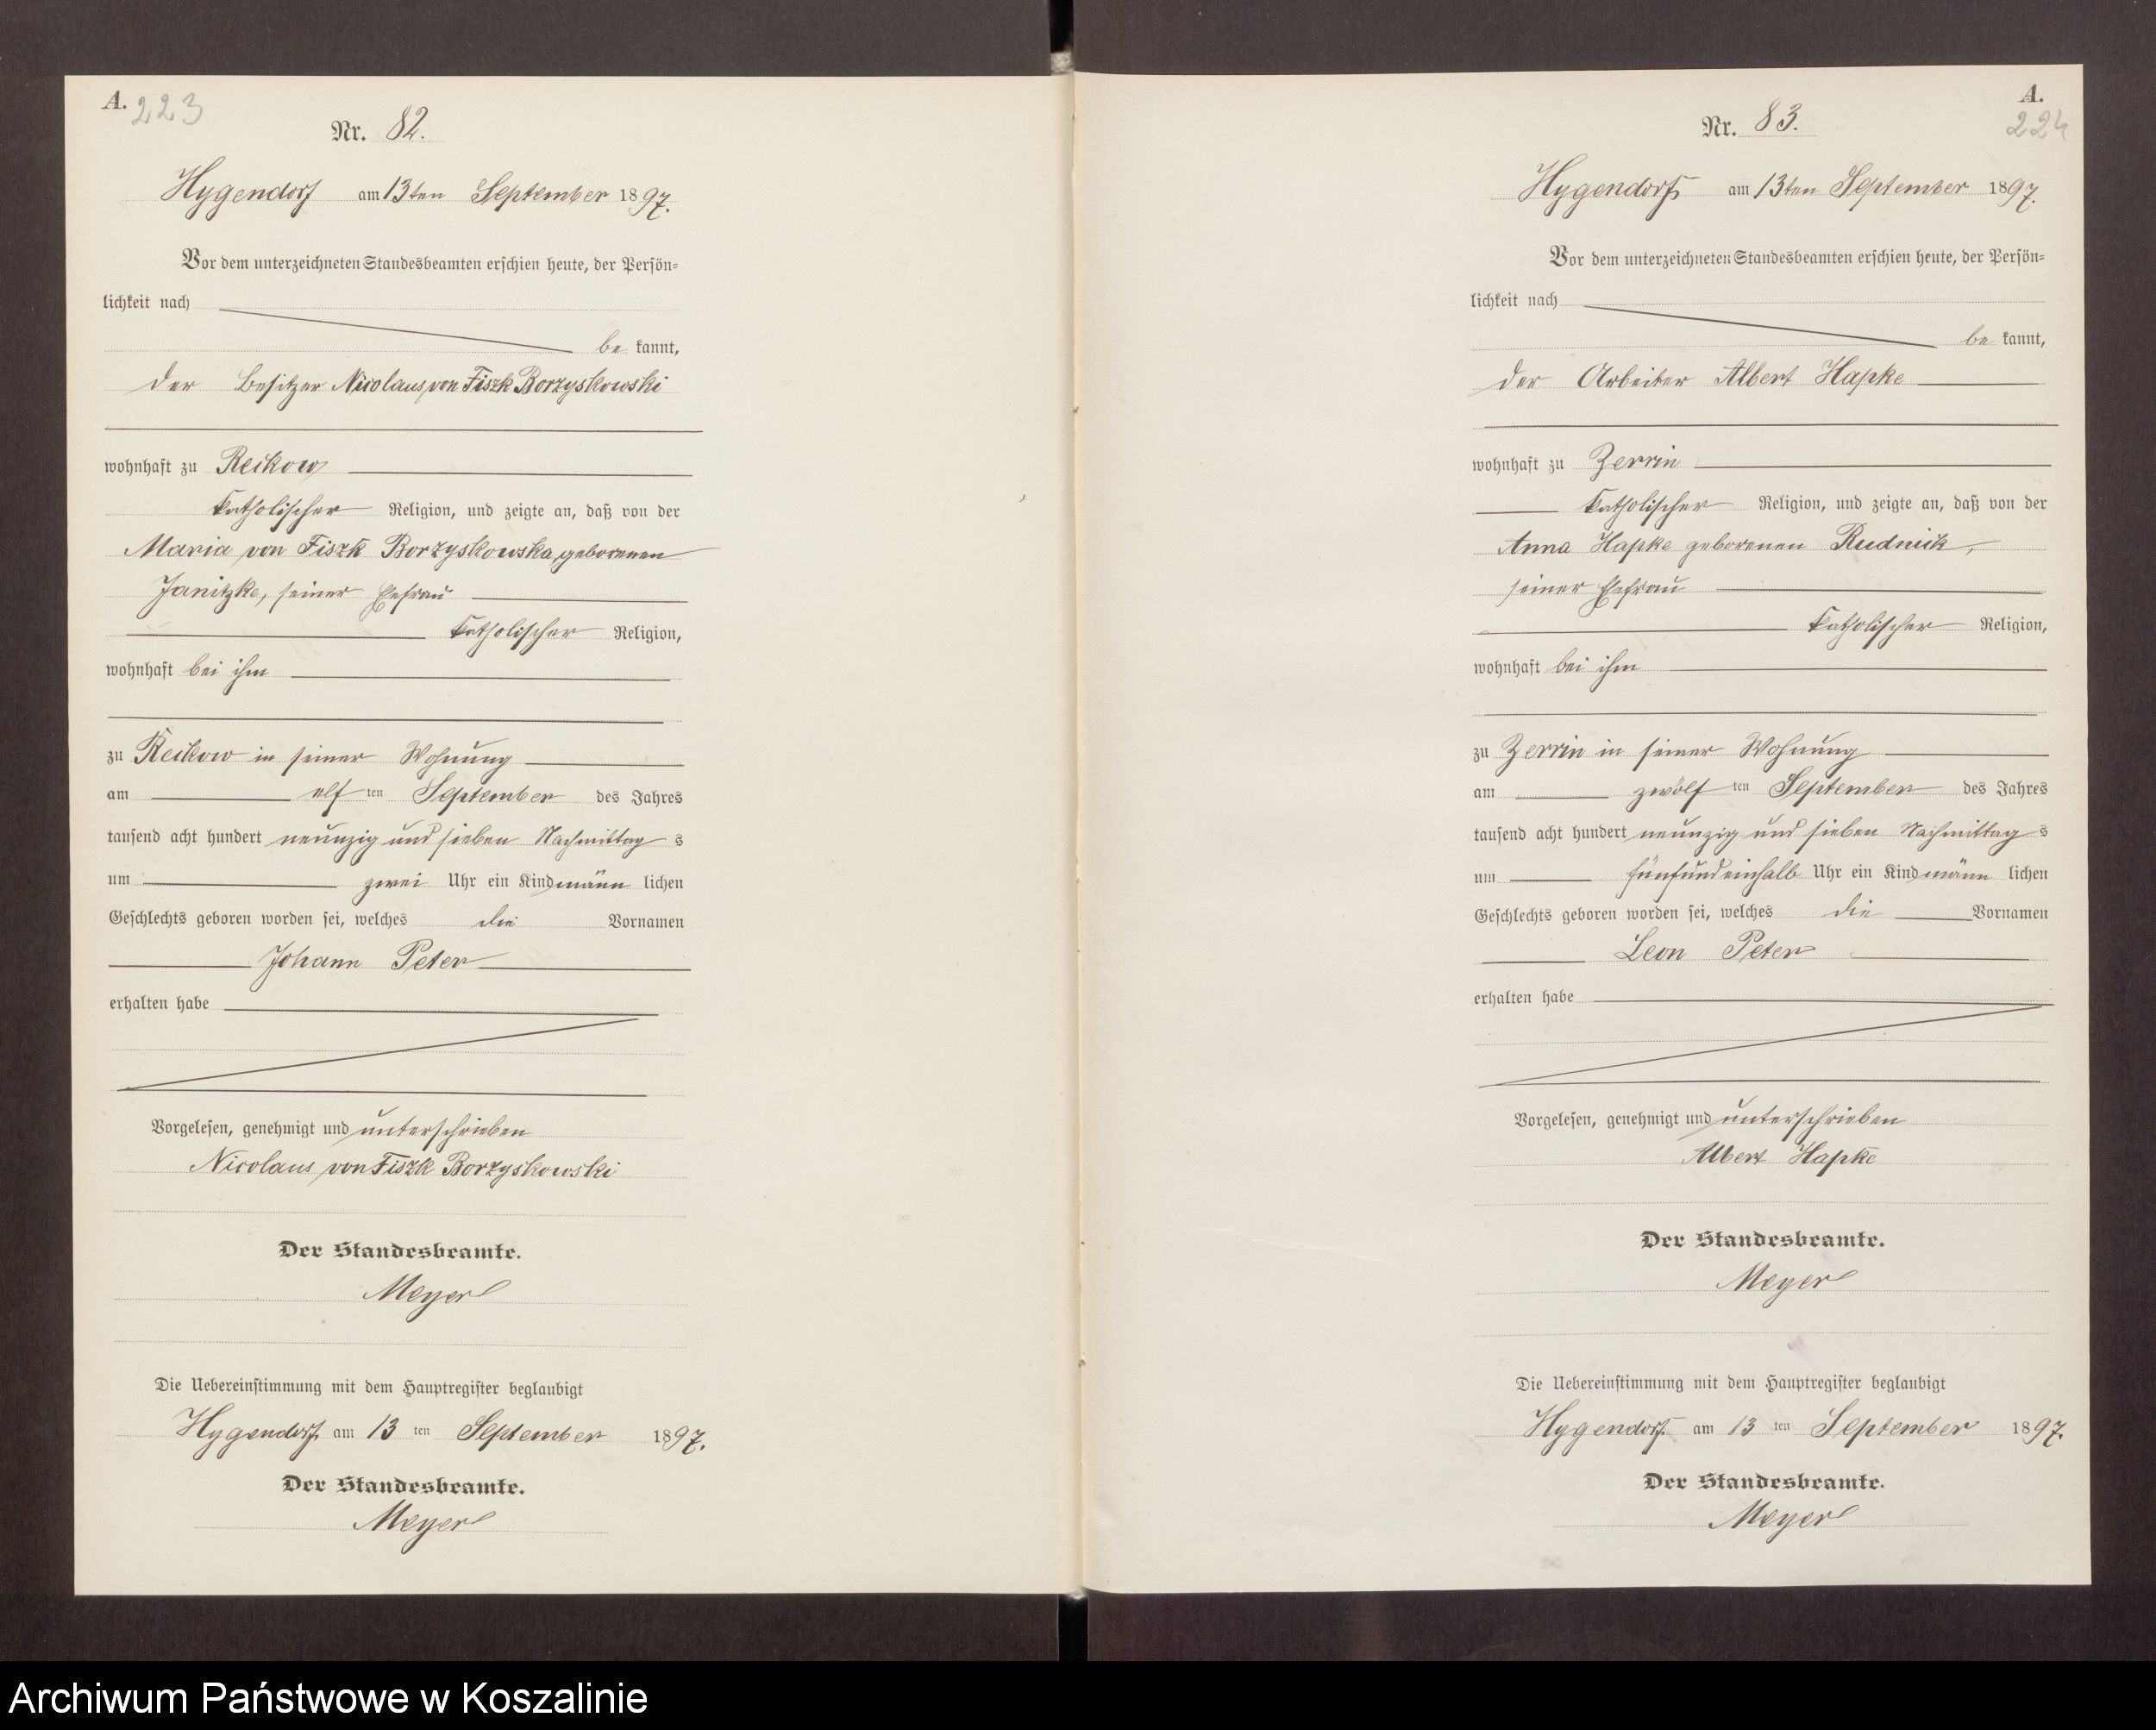 A.
223
Nr. 82.
Hygendorf am 13ten September 1897.
Vor dem unterzeichneten Standesbeamten erschien heute, der Persön-
lichkeit nach
be kannt,
der Besitzer Nicolaus von Fiszk Borzyskowski
wohnhaft zu Reikow
katholischer Religion, und zeigte an, daß von der
Maria von Fiszk Borzyskowska, geborenen
Janitzke, seiner Ehefrau
katholischer Religion,
wohnhaft bei ihm
zu Reikow in seiner Wohnung
am elf ten September des Jahres
tausend acht hundert neunzig und sieben Nachmittag s
um zwei Uhr ein Kind männ lichen
Geschlechts geboren worden sei, welches die Vornamen
Johann Peter
erhalten habe
Vorgelesen, genehmigt und unterschrieben
Nicolaus von Fiszk Borzyskowski
Der Standesbeamte.
Meyer
Die Uebereinstimmung mit dem Hauptregister beglaubigt
Hygendorf am 13 ten September 1897.
Der Standesbeamte.
Meyer
A.
224
Nr. 83.
Hygendorf am 13ten September 1897.
Vor dem unterzeichneten Standesbeamten erschien heute, der Persön-
lichkeit nach
be kannt,
der Arbeiter Albert Hapke
wohnhaft zu Zerrin
katholischer Religion, und zeigte an, daß von der
Anna Hapke geborenen Rudnik,
seiner Ehefrau
katholischer Religion,
wohnhaft bei ihm
zu Zerrin in seiner Wohnung
am zwölf ten September des Jahres
tausend acht hundert neunzig und sieben Nachmittag s
um fünfundeinhalb Uhr ein Kind männ lichen
Geschlechts geboren worden sei, welches die Vornamen
Leon Peter
erhalten habe
Vorgelesen, genehmigt und unterschrieben
Albert Hapke
Der Standesbeamte.
Meyer
Die Uebereinstimmung mit dem Hauptregister beglaubigt
Hygendorf am 13 ten September 1897.
Der Standesbeamte.
Meyer
Archiwum Państwowe w Koszalinie